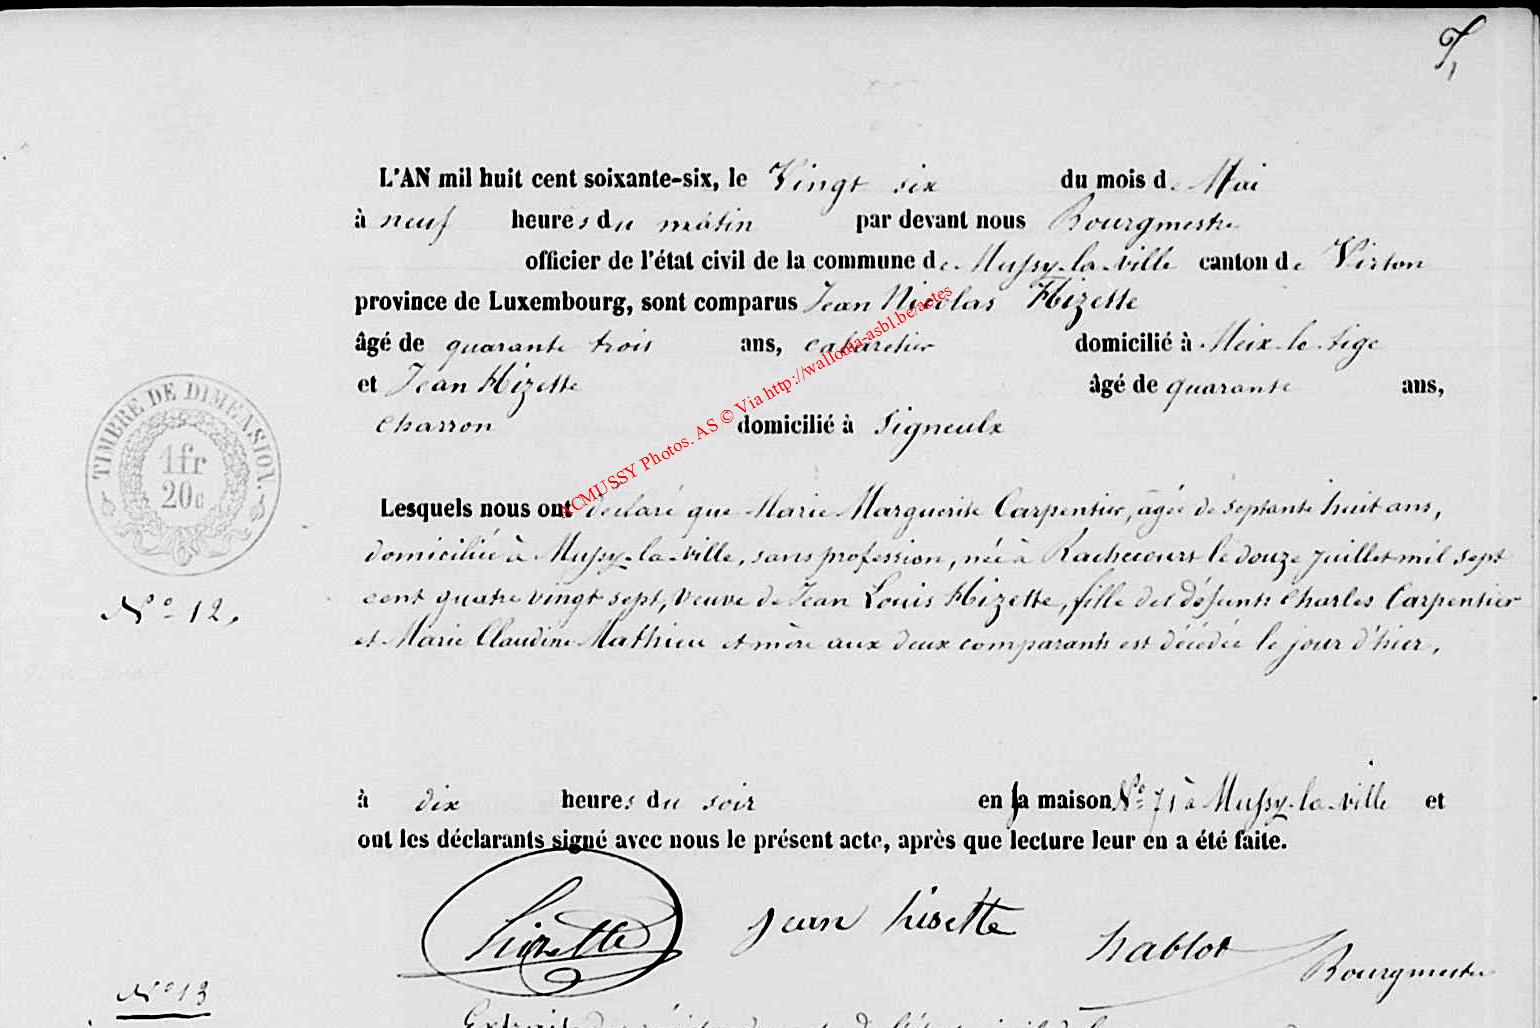 L'AN mil huit cent soixante-six, le Vingt six du mois de Mai
à neuf heures du matin par devant nous Bourgmestre
officier de l'état civil de la commune de Mussy-la-ville canton de Virton
province de Luxembourg, sont comparus Jean Nicolas Hizette
âgé de quarante trois ans, cabaretier domicilié à Meix-le-tige
et Jean Hizette âgé de quarante ans,
charron domicilié à Signeulx
ACMUSSY Photos. AS © Via http://wallonia-asbl.be/actes
TIMBRE DE DIMENSION.
1fr
20c
Lesquels nous ont déclaré que Marie Marguerite Carpentier, agée de septante huit ans,
domiciliée à Mussy-la-ville, sans profession, née à Rachecourt le douze juillet mil sept
N° 12,
cent quatre vingt sept, veuve de Jean Louis Hizette, fille des défunts Charles Carpentier
et Marie Claudine Mathieu et mère aux deux comparants est décédée le jour d'hier,
à dix heures du soir en sa maison N° 71 à Mussy-la-ville et
ont les déclarants signé avec nous le présent acte, après que lecture leur en a été faite.
Hizette Jean hisette hablot
Bourgmestre
N° 13
Extrait